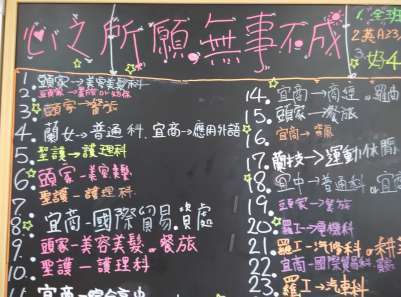 心之所願,無事不成
1.全班
2.英A23,
3.好4
1.頭家→美容美髮科
2.
3.頭家→餐旅
4.蘭女→普通科.宜商→應用外語
5.聖護→護理科
6.頭家-美容美髮
7.聖護-護理科
8.宜商-國際貿易.資處
9.頭家-美容美髮.餐旅
10.聖護-護理科
11.宜商
14.宜商→商經.羅商
15.頭家→餐旅
16.宜商→
17.蘭技→運動休閒
18.宜中→普通科 or 宜
19.頭家→餐旅
20.羅工→
21.羅工-汽修科.
22.宜商-國際貿易科.
23.羅工→汽車科